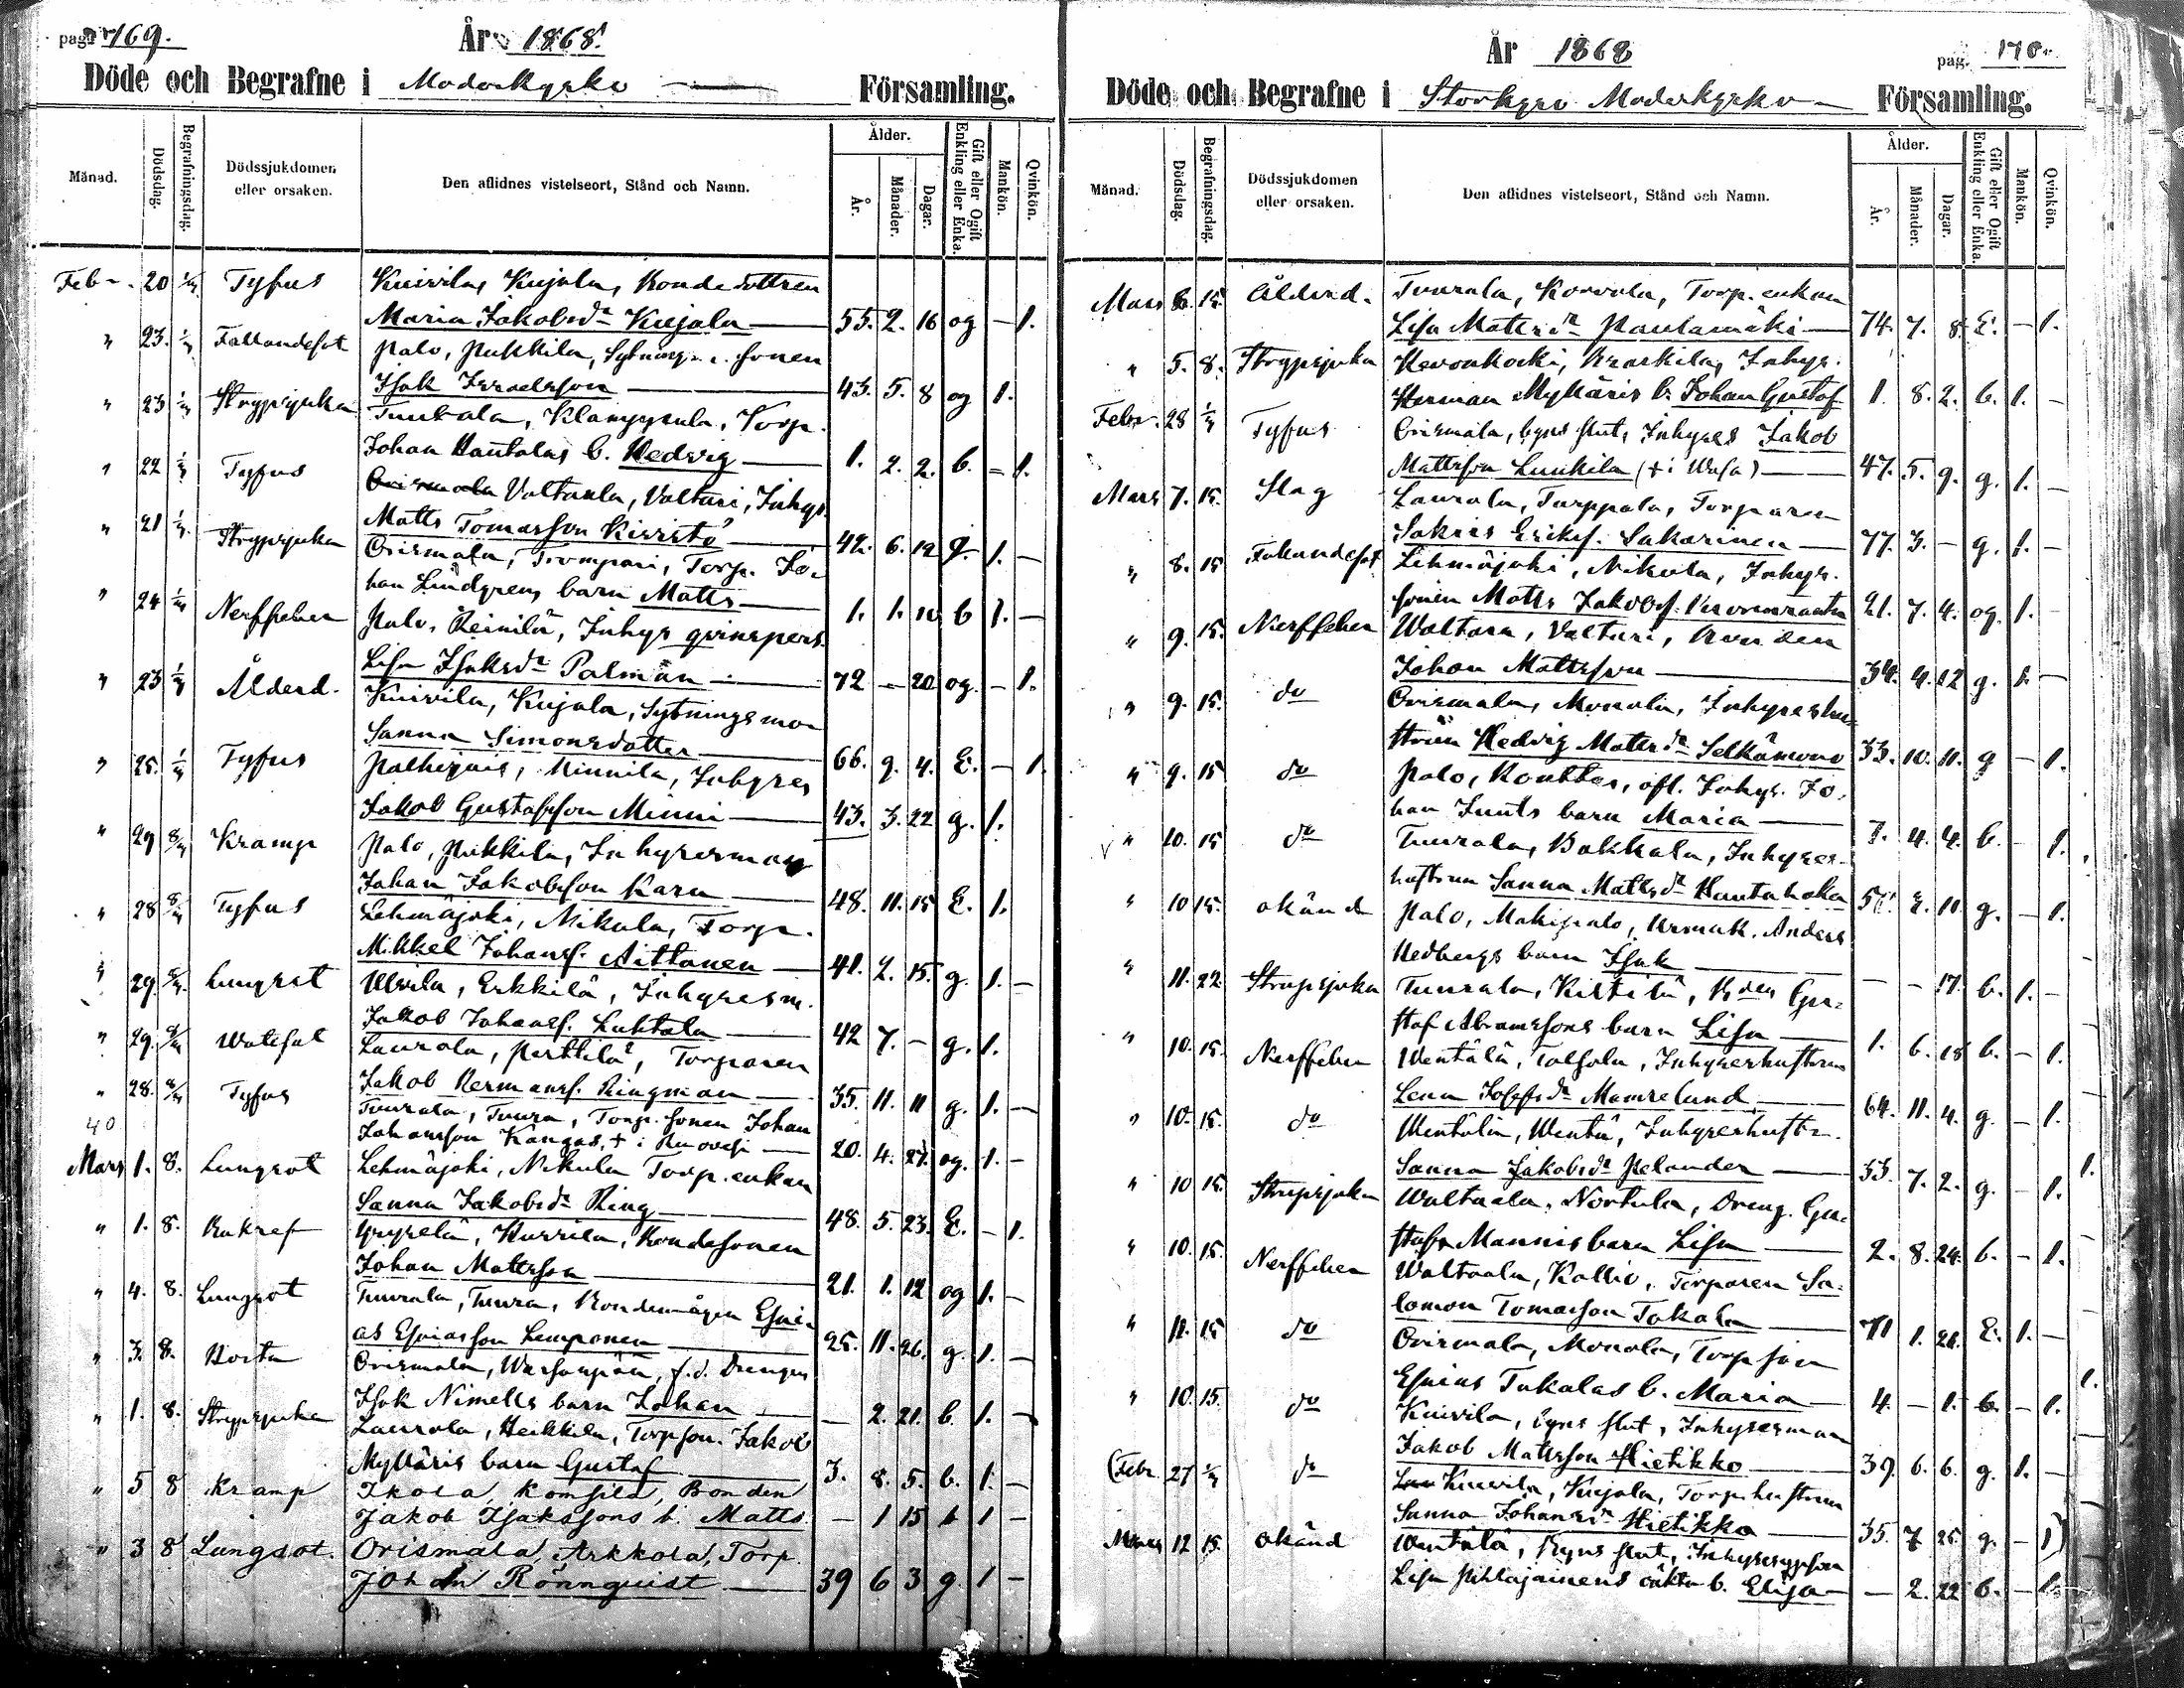 pag. 169.
År 1868.
Döde och Begrafne i Moderkyrko Församling.
Månad.
Dödsdag.
Begrafningsdag.
Dödssjukdomen eller orsaken.
Den aflidnes vistelseort, Stånd och Namn.
Ålder.
År.
Månader.
Dagar.
Gift eller Ogift Enkling eller Enka.
Mankön.
Qvinkön.
Feb. 20 1/3 Tyfus Kuivila, Kujala, Bondedottren
Maria Jakobsdr Kujala 55. 2. 16 og - 1.
" 23. 1/3 Fallandesot Palo, Pukkila, Sytnings. sonen
Isak Israelsson 43. 5. 8 og 1.
" 23 1/3 Strypsjuka Tuurala, Klamppula, Torp.
Johan Hautalas b. Hedvig 1. 2. 2. b. - 1.
" 22 1/3 Tyfus Orismala Valtaala, Valtari, Inhys.
Matts Tomasson Kirristö 42. 6. 12 g. 1. -
" 21 1/3 Strypsjuka Orismala, Trompari, Torp. Jo-
han Lindgrens barn Matts 1. 1. 10 b 1. -
" 24 1/3 Nerffeber Palo, Reinilä, Inhys qvinspers.
Lisa Isaksdr Palmän 72 - 20 og. - 1.
" 23 1/3 Ålderd. Kuivila, Kujala, Sytningsmor
Sanna Simonsdotter 66. 9. 4. E. - 1.
" 25. 1/3 Tyfus Palhojais, Minnila, Inhyses
Jakob Gustafsson Minni 43. 3. 22 g. 1.
" 29 8/3 Kramp Palo, Pukkila, Inhysesman
Johan Jakobsson Karu 48. 11. 15 E. 1.
" 28 8/3 Tyfus Lehmäjoki, Nikula, Torp.
Mikkel Johansf. Aittanen 41. 2. 15. g. 1. -
" 29. 8/3 Lungsot Ulvila, Erkkilä, Inhysesm.
Jakob Johansf. Luhtala 42 7. - g. 1.
" 29. 8/3 Watesot Laurola, Perttilä, Torparen
Jakob Hermansf. Ringman 35. 11. 11 g. 1. -
" 28. 8/3 Tyfus Tuurala, Tuura, Torp. sonen Johan
Johansson Kangas, + i Ruovesi 20. 4. 27. og. 1. -
40
Mars 1. 8. Lungsot Lehmäjoki, Nikula Torp. enkan
Sanna Jakobsdr Ring 48. 5. 23. E. - 1.
" 1. 8. Ryrelä, Kurrila, Bondesonen
Johan Mattsson 21. 1. 12 og 1. -
" 4. 8. Lungsot Tuurala, Tuura, Bondemågen Esai-
as Esaiasson Lemponen 25. 11. 26. g. 1. -
" 3. 8. Hosta Orismala, f.d. Drengen
Isak Nimells barn Johan - 2. 21. b. 1. -
" 1. 8. Strypsjuka Laurola, Heikkila, Torpson. Jakob
Mylläris barn Gustaf 3. 8. 5. b. 1. -
" 5 8 Kramp Ikola, Komsila, Bonden
Jakob Isakssons b. Matts - 1 15 b 1 -
" 3 8 Lungsot. Orismala, Arkkola, Torp.
Johan Rönnquist 39 6 3 g 1 -
År 1868
pag. 170.
Döde och Begrafne i Storkyro Moderkyrko Församling.
Månad.
Dödsdag.
Begrafningsdag.
Dödssjukdomen eller orsaken.
Den aflidnes vistelseort, Stånd och Namn.
Ålder.
År.
Månader.
Dagar.
Gift eller Ogift Enkling eller Enka.
Mankön.
Qvinkön.
Mars 6. 15. Ålderd. Tuurala, Korvola, Torp. enkan
Lisa Mattsdr Rautamäki 74. 7. 8. E. - 1.
" 5. 8. Strypsjuka Hevonkoski, Kraskila, Inhys.
Herman Mylläris b. Johan Gustaf 1. 8. 2. b. 1. -
Febr. 28 1/3 Tyfus Orismala, byns slut, Inhyses Jakob
Mattsson Luukila (+ i Wasa) 47. 5. 9. g. 1. -
Mars 7. 15. Slag Laurola, Turppala, Torparen
Sakris Eriksf. Sakarinen 77. 3. - g. 1. -
" 8. 15 Fallandesot Lehmäjoki, Nikula, Inhys.
sonen Matts Jakobsf. 21. 7. 4. og. 1. -
" 9. 15. Nerffeber Waltara, Valtari, Bonden
Johan Mattsson 34. 4. 12 g. 1. -
" 9. 15. do Orismala, Monola, Inhyseshu-
strun Hedvig Mattsdr Selkämono 33. 10. 11. g - 1.
" 9. 15 do Palo, Konttas, afl. Inhys. Jo-
han Junts barn Maria 7. 4. 4. b. - 1.
" 10. 15 do Tuurala, Bakkala, Inhyses-
hustrun Sanna Mattsdr Rautakoka 10. g. - 1.
" 10 15. okänd Palo, Makipalo, Kronuk. Anders
Hedbergs barn Isak - - 17. b. 1. -
" 11. 22 Strypsjuka Tuurala, Kistilä, Bden Gu-
staf Abramssons barn Lisa 1. 6. 18 b. - 1.
" 10. 15. Nerffeber Wentälä, Talsola, Inhyseshustrun
Lena Josefsdr Mamrelund 64. 11. 4. g - 1.
" 10. 15. do Wentälä, Wentä, Inhyseshustr.
Sanna Jakobsdr Pelander 33. 7. 2. g. - 1.
" 10 15. Strypsjuka Waltaala, Nortula, Dreng. Gu-
stafs Mannis barn Lisa 2. 8. 24. b. - 1.
" 10. 15. Nerffeber Waltaala, Kallio, Torparen Sa-
lomon Tomasson Tokala 71 1. 26. E. 1. -
" 11. 15 do Orismala, Monola, Torpson
Esaias Tukalas b. Maria 4. - 1. b. - 1.
" 10. 15. do Kuivila, byns slut, Inhysesman
Jakob Mattsson Hietikko 39. 6. 6. g. 1. -
(Febr. 27 1/3 do Kuivila, Kujala, Torp. hustrun
Sanna Johansdr Hietikko 35. 7 25. g. - 1)
Mars 12 15. okänd Wentälä, byns slut,
Lisa Pihlajainens oäkta b. Elisa - 2. 22 b. - 1.